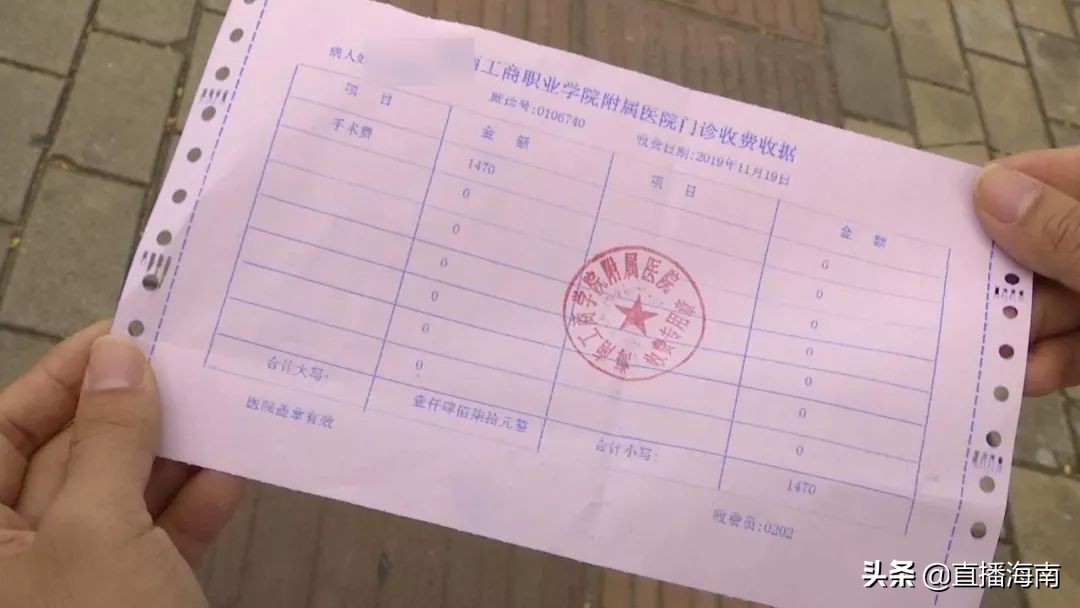 南工商职业学院附属医院门诊收费收据
病人姓
账诊号:0106740
收费日期:2019年11月19日
项 目 金 额 项 目 金 额
手术费 1470 0
0 0
0 0
0 0
0 0
0 0
0 0
合计大写: 壹仟肆佰柒拾元整 合计小写: 1470
医院盖章有效
收费员:0202
海南工商学院附属医院
收费专用章
头条 @直播海南